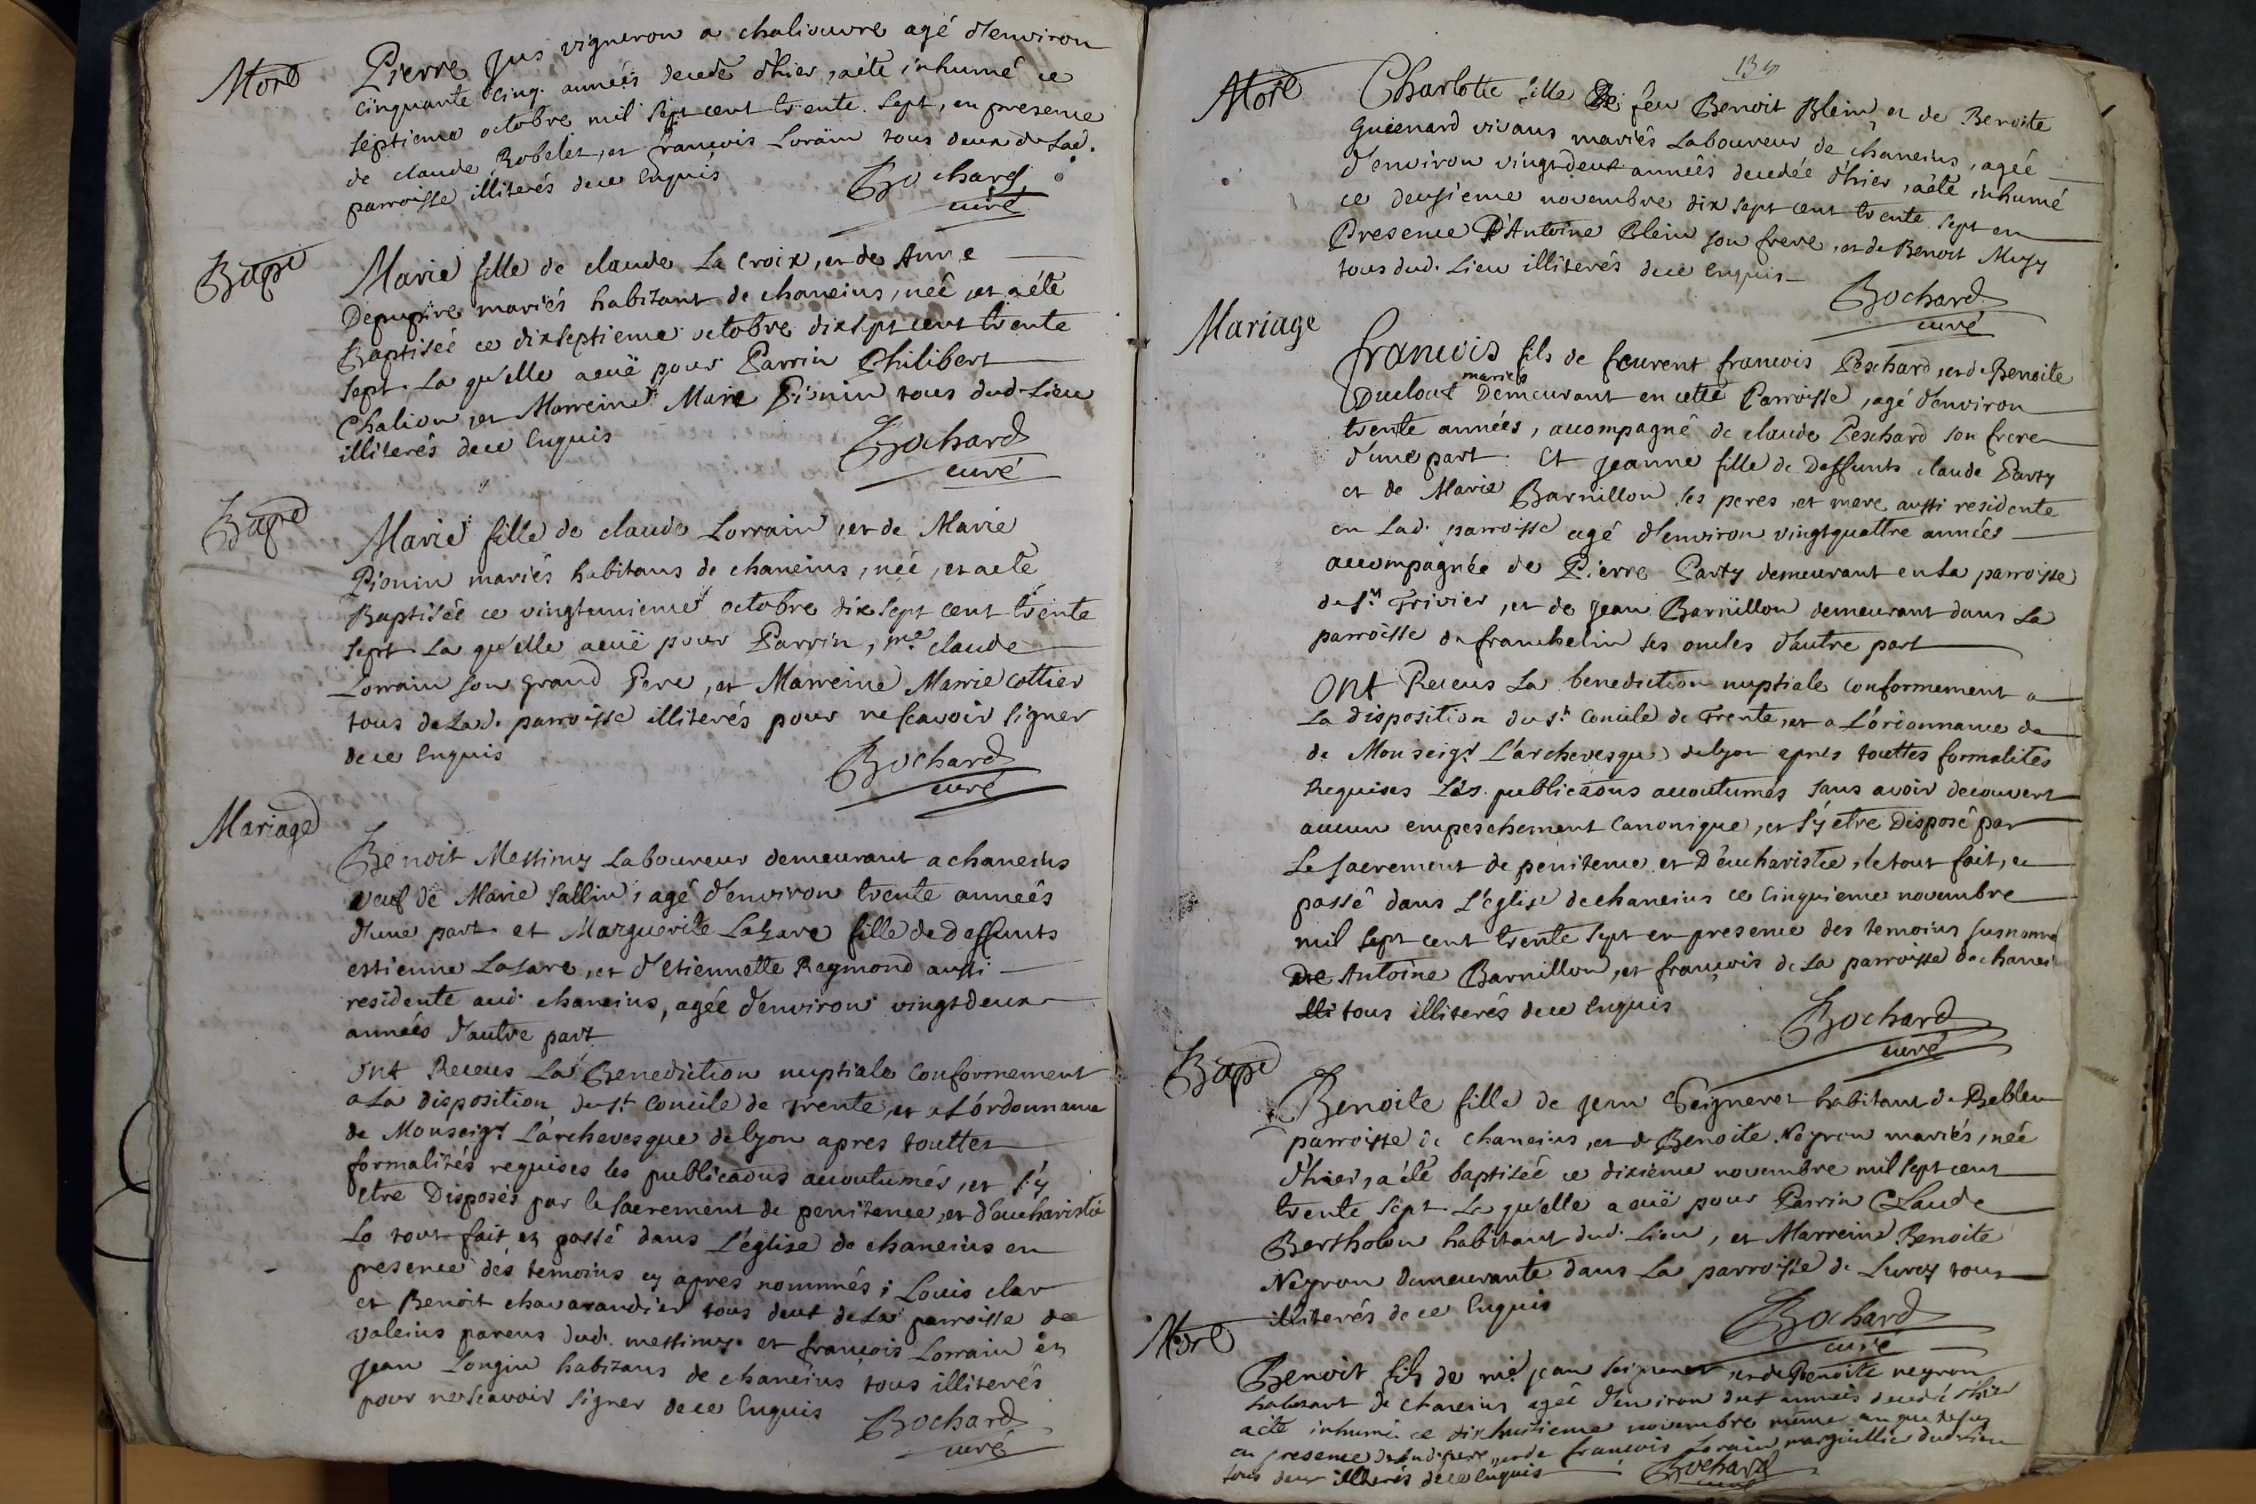 Mort
Pierre Jus vigneron a chaliouvre agé d'environ
cinquante cinq années decedé d'hier, a été inhumé ce
septieme octobre mil sept cent trente sept, en presence
de claude Robelet, et françois Loraïn tous deux de lad.
parroisse illiterés de ce Enquis
Bochard
curé
Bape
Marie fille de claude La Croix, et de Anne
mariés habitant de chaneins, neé, et a été
Baptiséé ce dixseptieme octobre dixsept cent trente
sept. La qu'elle a euë pour Parrin Philibert
Chalion, et Marreine Marie Pionin tous dud. Lieu
illiterés de ce Enquis
Bochard
curé
Bape
Marie fille de claude Lorrain, et de Marie
Pionin mariés habitans de chaneins, néé, et a eté
Baptiséé ce vingtunieme octobre dix sept cent trente
sept. La qu'elle a euë pour Parrin, me claude
Lorrain son grand Pere, et Marreine Marie Cottier
tous de la d. parroisse illiterés pour ne scavoir signer
de ce Enquis
Bochard
curé
Mariage
Benoit Messimy Laboureur demeurant a chaneins
veuf de Marie Sallin, agé d'environ trente anneés
d'une part. et Marguerite Lasare fille de Deffunts
estienne Lasare, et d'Etiennette Reymond aussi
residente aud. chaneins, agéé d'environ vingtdeux
années d'autre part
Ont Receus La Benediction nuptiale Conformement
a La disposition du st. Concile de Trente, et a L'ordonnance
de Monseigr. L'archevesque de lyon apres touttes
formalités requises les publicaons acoutumés, et s'y
etre Disposés par le sacrement de penitence, et d'eucharistie
Le tout fait et passé dans L'église de chaneins en
presence dés temoins cy apres nommés; Louis clar
et Benoit chavarandier tous deux de La parroisse de
valeins parens dud. messimy. et françois Lorrain et
Jean Longin habitans de chaneins tous illiterés
pour ne scavoir signer de ce Enquis
Bochard
curé
Mort
Charlotte fille De feu Benoit Blein et de Benoite
Guienard vivans mariés Laboureur de chaneins, agéé
d'environ vingtdeux années decedéé d'hier, a été inhumé
ce deusieme novembre dix sept cent trente sept en
Presence D'Antoine Blein son frere, et de Benoit
tous dud. Lieu illiterés de ce Enquis
Bochard
curé
Mariage
françois fils de francois Peschard, et de Benoite
mariés
Duclout Demeurant en cette Parroisse, agé d'environ
trente années, accompagné de claude Peschard son frere
d'une part. Et Jeanne fille de Deffunts claude Party
et de Marie Barnillon ses peres, et mere aussi residente
en Lad. parroisse agé d'environ vingtquattre années
accompagnéé de Pierre Party demeurant en La parroisse
de st. Trivier, et de Jean Barnillon demeurant dans La
parroisse de franchelin ses oncles d'autre part
Ont Receus La benediction nuptiale conformement a
La disposition du st. Concile de Trente, et a L'ordonnance de
de Monseigr. L'archevesque de lyon apres touttes formalités
Requises Les publicaons acoutumés sans avoir decouvert
aucun empeschement Canonique, et s'y etre Disposé par
Le sacrement de penitence et D'eucharistie, le tout fait, et
passé dans L'église de chaneins ce Cinquieme novembre
mil sept cent trente sept en presence des temoins susnommé
De Antoine Barnillon, et françois de La parroisse de chanei
illi tous illiterés de ce Enquis
Bochard
curé
Bape
Benoite fille de Jean Seigneret habitant de
parroisse de chaneins, et de Benoite Neyron mariés, néé
d'hier, a été baptiséé ce dixieme novembre mil sept cent
trente sept. La qu'elle a euë pour Parrin Claude
Bertholon habitant dud. Lieu, et Marreine Benoite
Neyron demeurante dans La parroisse de Lurcy tous
illiterés de ce Enquis
Bochard
curé
Mort
Benoit fils de me jean seigneret et de Benoite neyron
habitant de chaneins ageé d'environ années decedé d'hier
a eté inhumé ce dixhuitieme novembre même an que dessus
en presence de sud. pere, et de françois Lorain marguillier dud Lieu
tous deux illiterés de ce Enquis
Bochard
curé